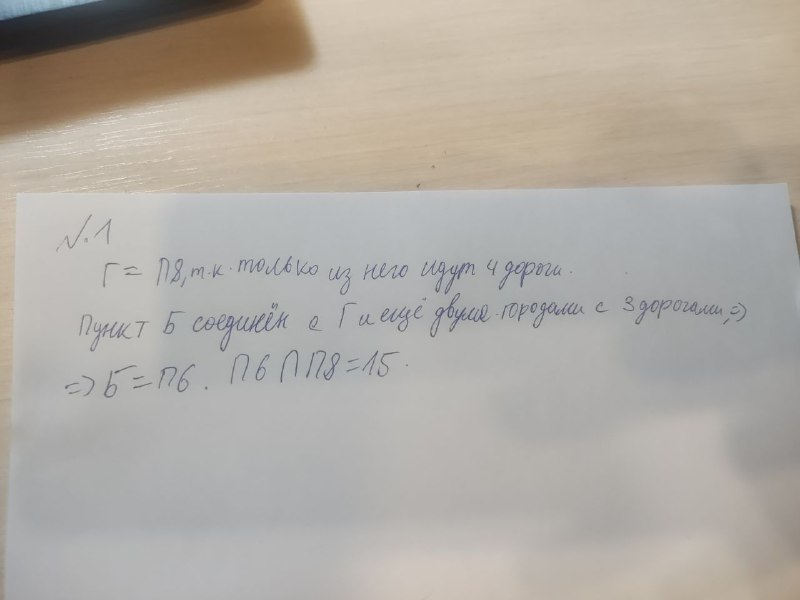 №.1
Г = П8, т.к. только из него идут 4 дороги.
Пункт Б соединён с Г и ещё двумя городами с 3 дорогами, =>
=> Б = П6. П6 ∩ П8 = 15.